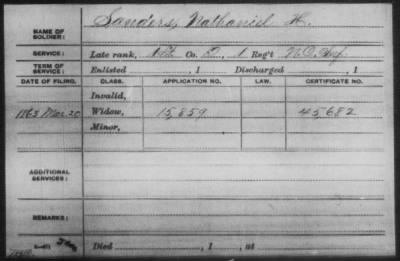 NAME OF SOLDIER: Sanders, Nathaniel H.
SERVICE: Late rank, Co. 1 Reg't Inf.
TERM OF SERVICE: Enlisted , 1 Discharged , 1
DATE OF FILING. CLASS. APPLICATION NO. LAW. CERTIFICATE NO.
Invalid,
1863 Mar. 20 Widow, 15,859 45,682
Minor,
ADDITIONAL SERVICES:
REMARKS:
Died , 1 , at